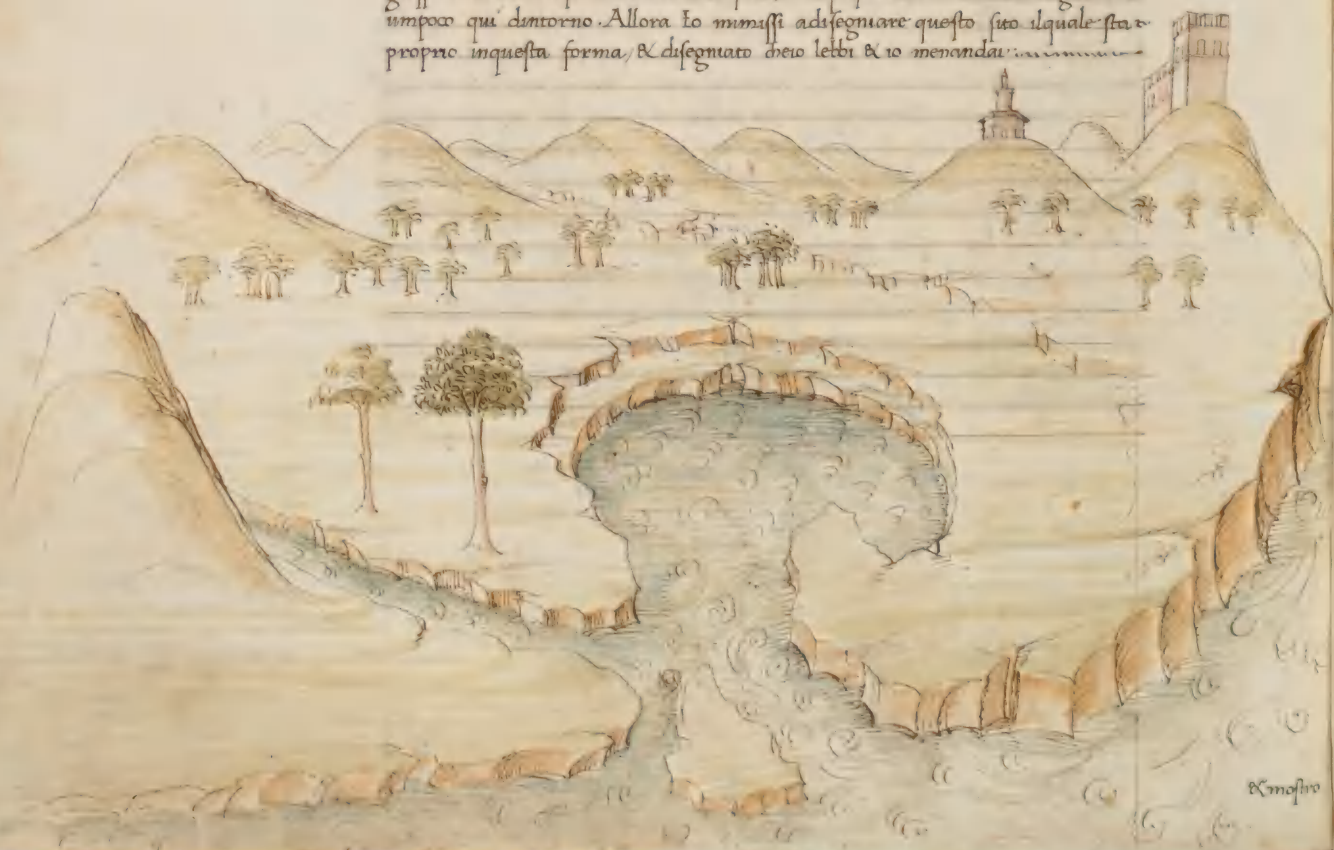 umpoco qui dintorno. Allora Io mimissi adisegniare questo sito ilquale sta
proprio inquesta forma, & disegniato cheio lebbi & io menandai
& mostro